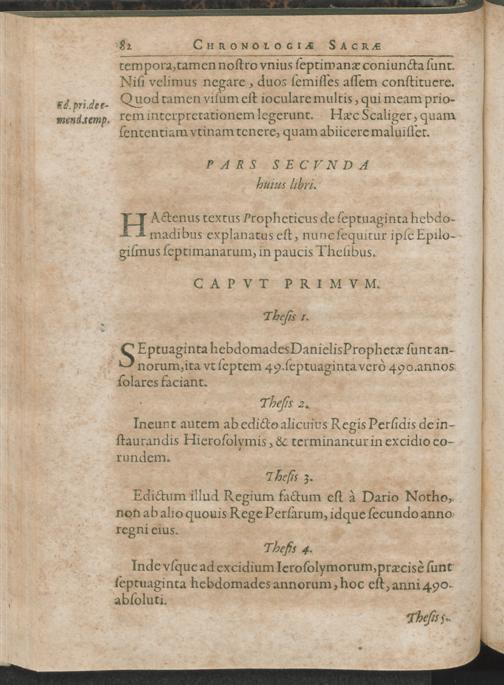 82 CHRONOLOGIÆ SACRÆ
tempora, tamen nostro vnius septimanæ coniuncta sunt.
Nisi velimus negare, duos semisses assem constituere.
Quod tamen visum est ioculare multis, qui meam prio-
Ed. pri. de e-
mend. temp.
rem interpretationem legerunt. Hæc Scaliger, quam
sententiam vtinam tenere, quam abiicere maluisset.
PARS SECVNDA
huius libri.
HActenus textus Propheticus de septuaginta hebdo-
madibus explanatus est, nunc sequitur ipse Epilo-
gismus septimanarum, in paucis Thesibus.
CAPVT PRIMVM.
Thesis 1.
SEptuaginta hebdomades Danielis Prophetæ sunt an-
norum, ita vt septem 49. septuaginta verò 490. annos
solares faciant.
Thesis 2.
Ineunt autem ab edicto alicuius Regis Persidis de in-
staurandis Hierosolymis, & terminantur in excidio eo-
rundem.
Thesis 3.
Edictum illud Regium factum est à Dario Notho,
non ab alio quouis Rege Persarum, idque secundo anno
regni eius.
Thesis 4.
Inde vsque ad excidium Ierosolymorum, præcisè sunt
septuaginta hebdomades annorum, hoc est, anni 490.
absoluti.
Thesis 5.